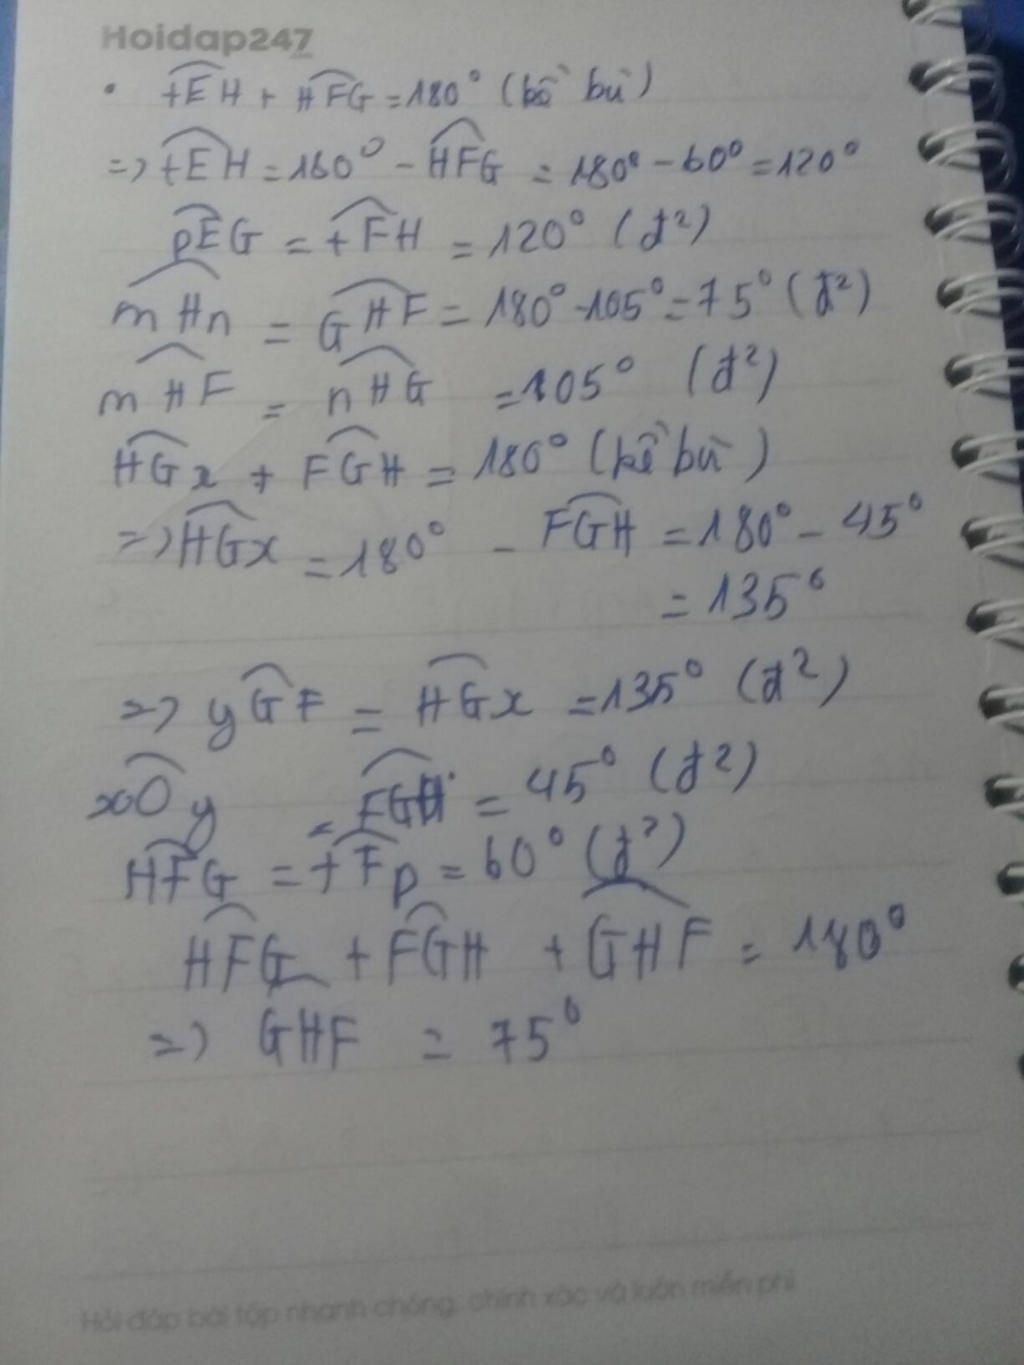 Hoidap247
• tEH + HFG = 180° (kề bù)
=> tEH = 180° - HFG = 180° - 60° = 120°
pEG = tFH = 120° (đ²)
mHn = GHF = 180° - 105° = 75° (đ²)
mHF = nHG = 105° (đ²)
HGx + FGH = 180° (kề bù)
=> HGx = 180° - FGH = 180° - 45°
= 135°
=> yGF = HGx = 135° (đ²)
xOy = FGH = 45° (đ²)
HFG = tFp = 60° (đ²)
HFG + FGH + GHF = 180°
=> GHF = 75°
Hỏi đáp bài tập nhanh chóng, chính xác và luôn miễn phí